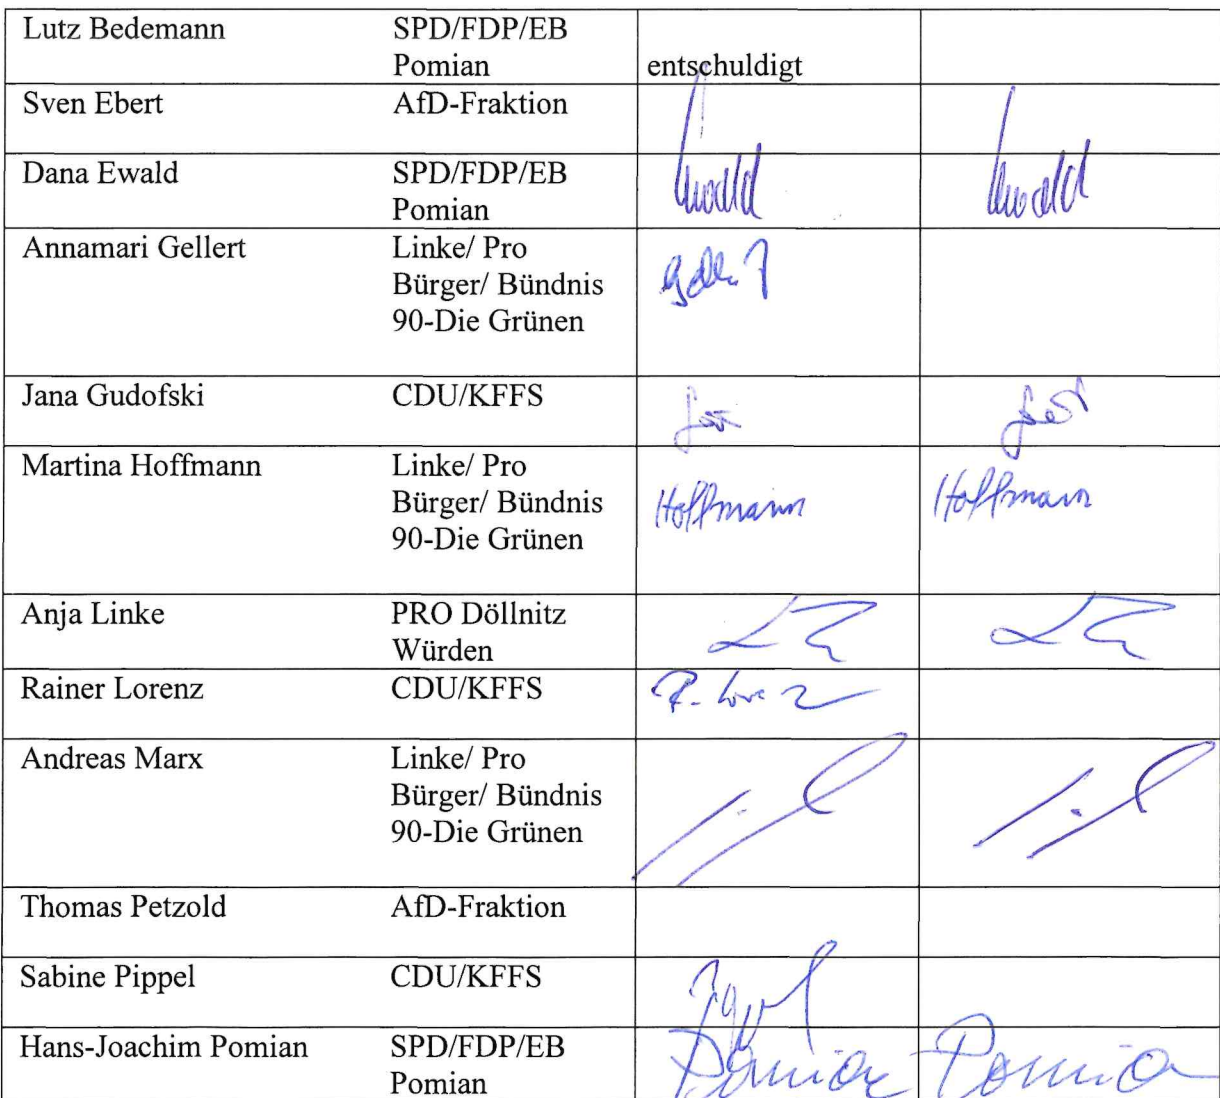 Lutz Bedemann SPD/FDP/EB
Pomian entschuldigt
Sven Ebert AfD-Fraktion
Dana Ewald SPD/FDP/EB
Pomian Ewald Ewald
Annamari Gellert Linke/ Pro
Bürger/ Bündnis
90-Die Grünen
Jana Gudofski CDU/KFFS
Martina Hoffmann Linke/ Pro
Bürger/ Bündnis Hoffmann Hoffmann
90-Die Grünen
Anja Linke PRO Döllnitz
Würden
Rainer Lorenz CDU/KFFS R. Lorenz
Andreas Marx Linke/ Pro
Bürger/ Bündnis
90-Die Grünen
Thomas Petzold AfD-Fraktion
Sabine Pippel CDU/KFFS
Hans-Joachim Pomian SPD/FDP/EB
Pomian Pomian Pomian